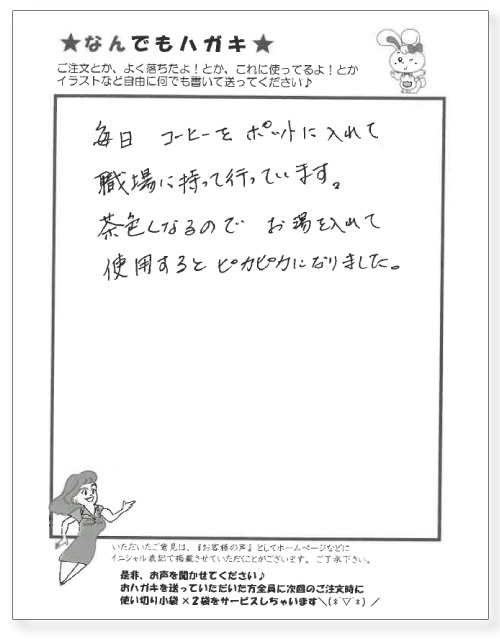 ★なんでもハガキ★
ご注文とか、よく落ちたよ！とか、これに使ってるよ！とか
イラストなど自由に何でも書いて送ってください♪
毎日 コーヒーを ポットに入れて
職場に持って行っています。
茶色くなるので お湯を入れて
使用すると ピカピカになりました。
いただいたご意見は、『お客様の声』としてホームページなどに
イニシャル表記で掲載させていただくことがございます。ご了承下さい。
是非、お声を聞かせてください♪
おハガキを送っていただいた方全員に次回のご注文時に
使い切り小袋×2袋をサービスしちゃいます＼(*´▽`*)／